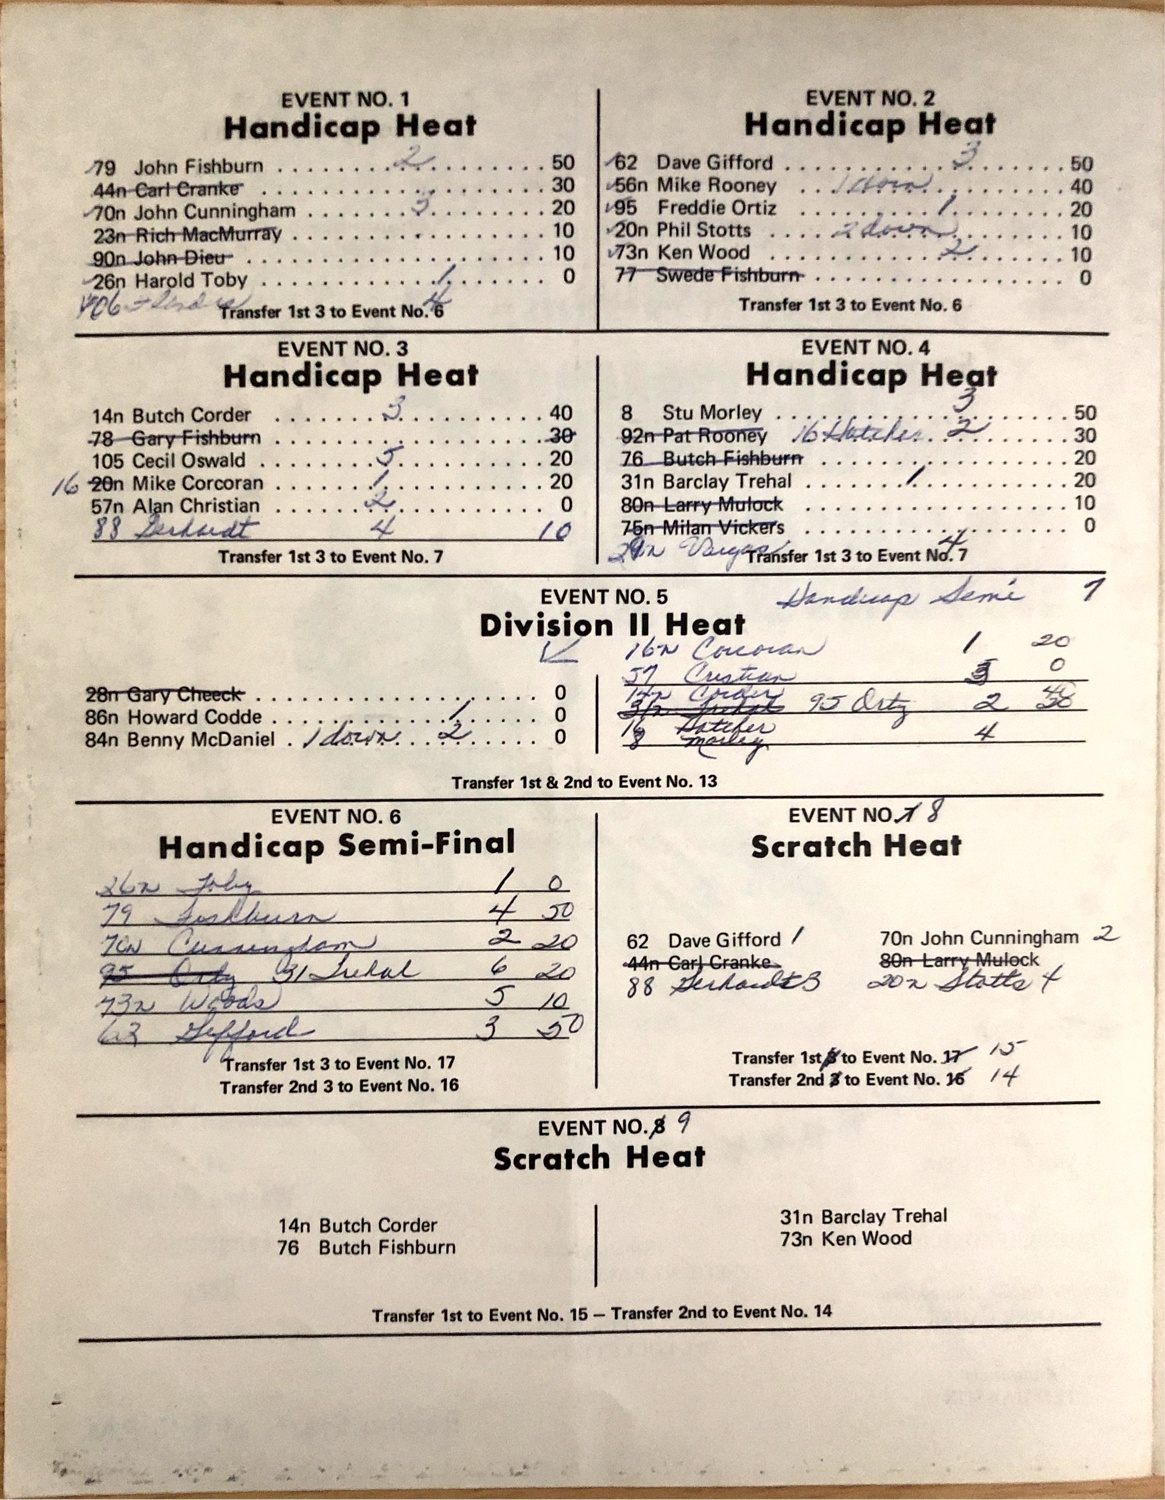 EVENT NO. 1
Handicap Heat
79 John Fishburn . . . . . . . . . . . . . . . . . 50 2
44n Carl Cranke . . . . . . . . . . . . . . . . . . 30
70n John Cunningham . . . . . . . . . . . . . . . 20 3
23n Rich MacMurray . . . . . . . . . . . . . . . . 10
90n John Dieu . . . . . . . . . . . . . . . . . . . 10
26n Harold Toby . . . . . . . . . . . . . . . . . . 0 1
4
Transfer 1st 3 to Event No. 6
EVENT NO. 2
Handicap Heat
62 Dave Gifford . . . . . . . . . . . . . . . . . . 50 3
56n Mike Rooney 1 down . . . . . . . . . . . . 40
95 Freddie Ortiz . . . . . . . . . . . . . . . . . 20 1
20n Phil Stotts . . . . 2 down . . . . . . . . . 10
73n Ken Wood . . . . . . . . . . . . . . . . . . . 10 2
77 Swede Fishburn . . . . . . . . . . . . . . . . 0
Transfer 1st 3 to Event No. 6
EVENT NO. 3
Handicap Heat
14n Butch Corder . . . . . . . . . . . . . . . . . 40 3
78 Gary Fishburn . . . . . . . . . . . . . . . . . 30
105 Cecil Oswald . . . . . . . . . . . . . . . . . 20 5
16 20n Mike Corcoran . . . . . . . . . . . . . . . 20 1
57n Alan Christian . . . . . . . . . . . . . . . . 0 2
88 Gerhardt 4 10
Transfer 1st 3 to Event No. 7
EVENT NO. 4
Handicap Heat
8 Stu Morley . . . . . . . . . . . . . . . . . . . 50 3
92n Pat Rooney 16 Hatcher . . 2 . . . . . . . . 30
76 Butch Fishburn . . . . . . . . . . . . . . . . 20
31n Barclay Trehal . . . . . . . . . . . . . . . . 20 1
80n Larry Mulock . . . . . . . . . . . . . . . . . 10
75n Milan Vickers . . . . . . . . . . . . . . . . . 0
Vargas 4
Transfer 1st 3 to Event No. 7
EVENT NO. 5
Division II Heat
28n Gary Cheeck . . . . . . . . . . . . . . . . . . 0
86n Howard Codde . . . . . . . . . . . . . . . . . 0 1
84n Benny McDaniel . 1 down . . . 2 . . . . . . 0
Handicap Semi 7
16n Corcoran 1 20
57 Cristian 3 0
14n Corder 40
31n Trehal 95 Ortz 2
16 Hatcher
8 Morley 4
Transfer 1st & 2nd to Event No. 13
EVENT NO. 6
Handicap Semi-Final
26n Toby 1 0
79 Fishburn 4 50
70n Cunningham 2 20
95 Ortz 31 Trehal 6 20
73n Woods 5 10
62 Gifford 3 50
Transfer 1st 3 to Event No. 17
Transfer 2nd 3 to Event No. 16
EVENT NO. 7 8
Scratch Heat
62 Dave Gifford 1
44n Carl Cranke
88 Gerhardt 3
70n John Cunningham 2
80n Larry Mulock
20n Stotts 4
Transfer 1st 3 to Event No. 17 15
Transfer 2nd 3 to Event No. 16 14
EVENT NO. 8 9
Scratch Heat
14n Butch Corder
76 Butch Fishburn
31n Barclay Trehal
73n Ken Wood
Transfer 1st to Event No. 15 – Transfer 2nd to Event No. 14